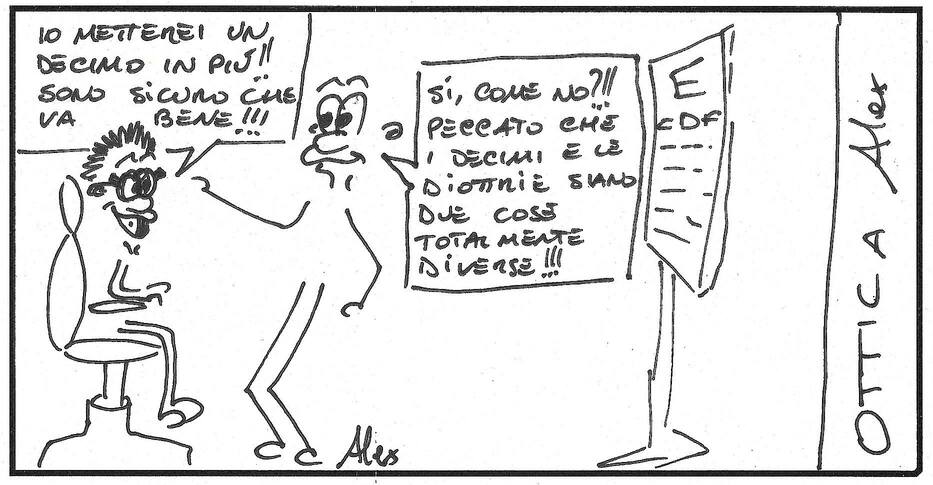 IO METTEREI UN
DECIMO IN PIÚ!!
SONO SICURO CHE
VA BENE!!!
SI, COME NO?!!
PECCATO CHE
I DECIMI E LE
DIOTTRIE SIANO
DUE COSE
TOTALMENTE
DIVERSE!!!
E
CDF
Alex
OTTICA Alex